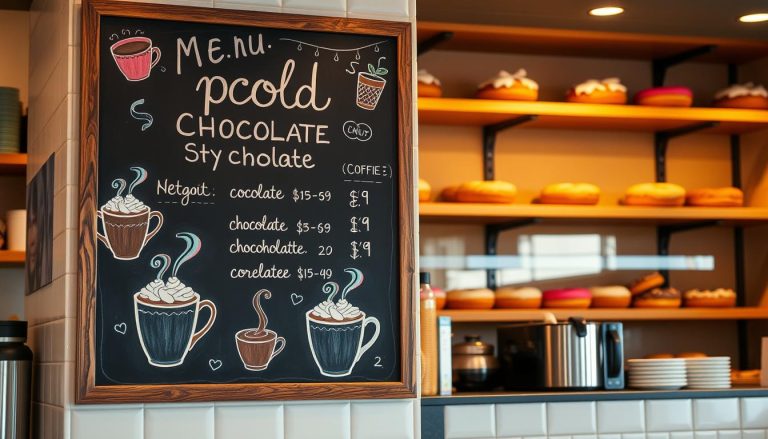 ME.nu.
pcold
CHOCOLATE
Sty cholate
(COFFIE:)
Netgoit: cocolate $15-59 £9
chocolate $3-69 £9
chocohlatte. 20 $9
corelatee $15-49
2